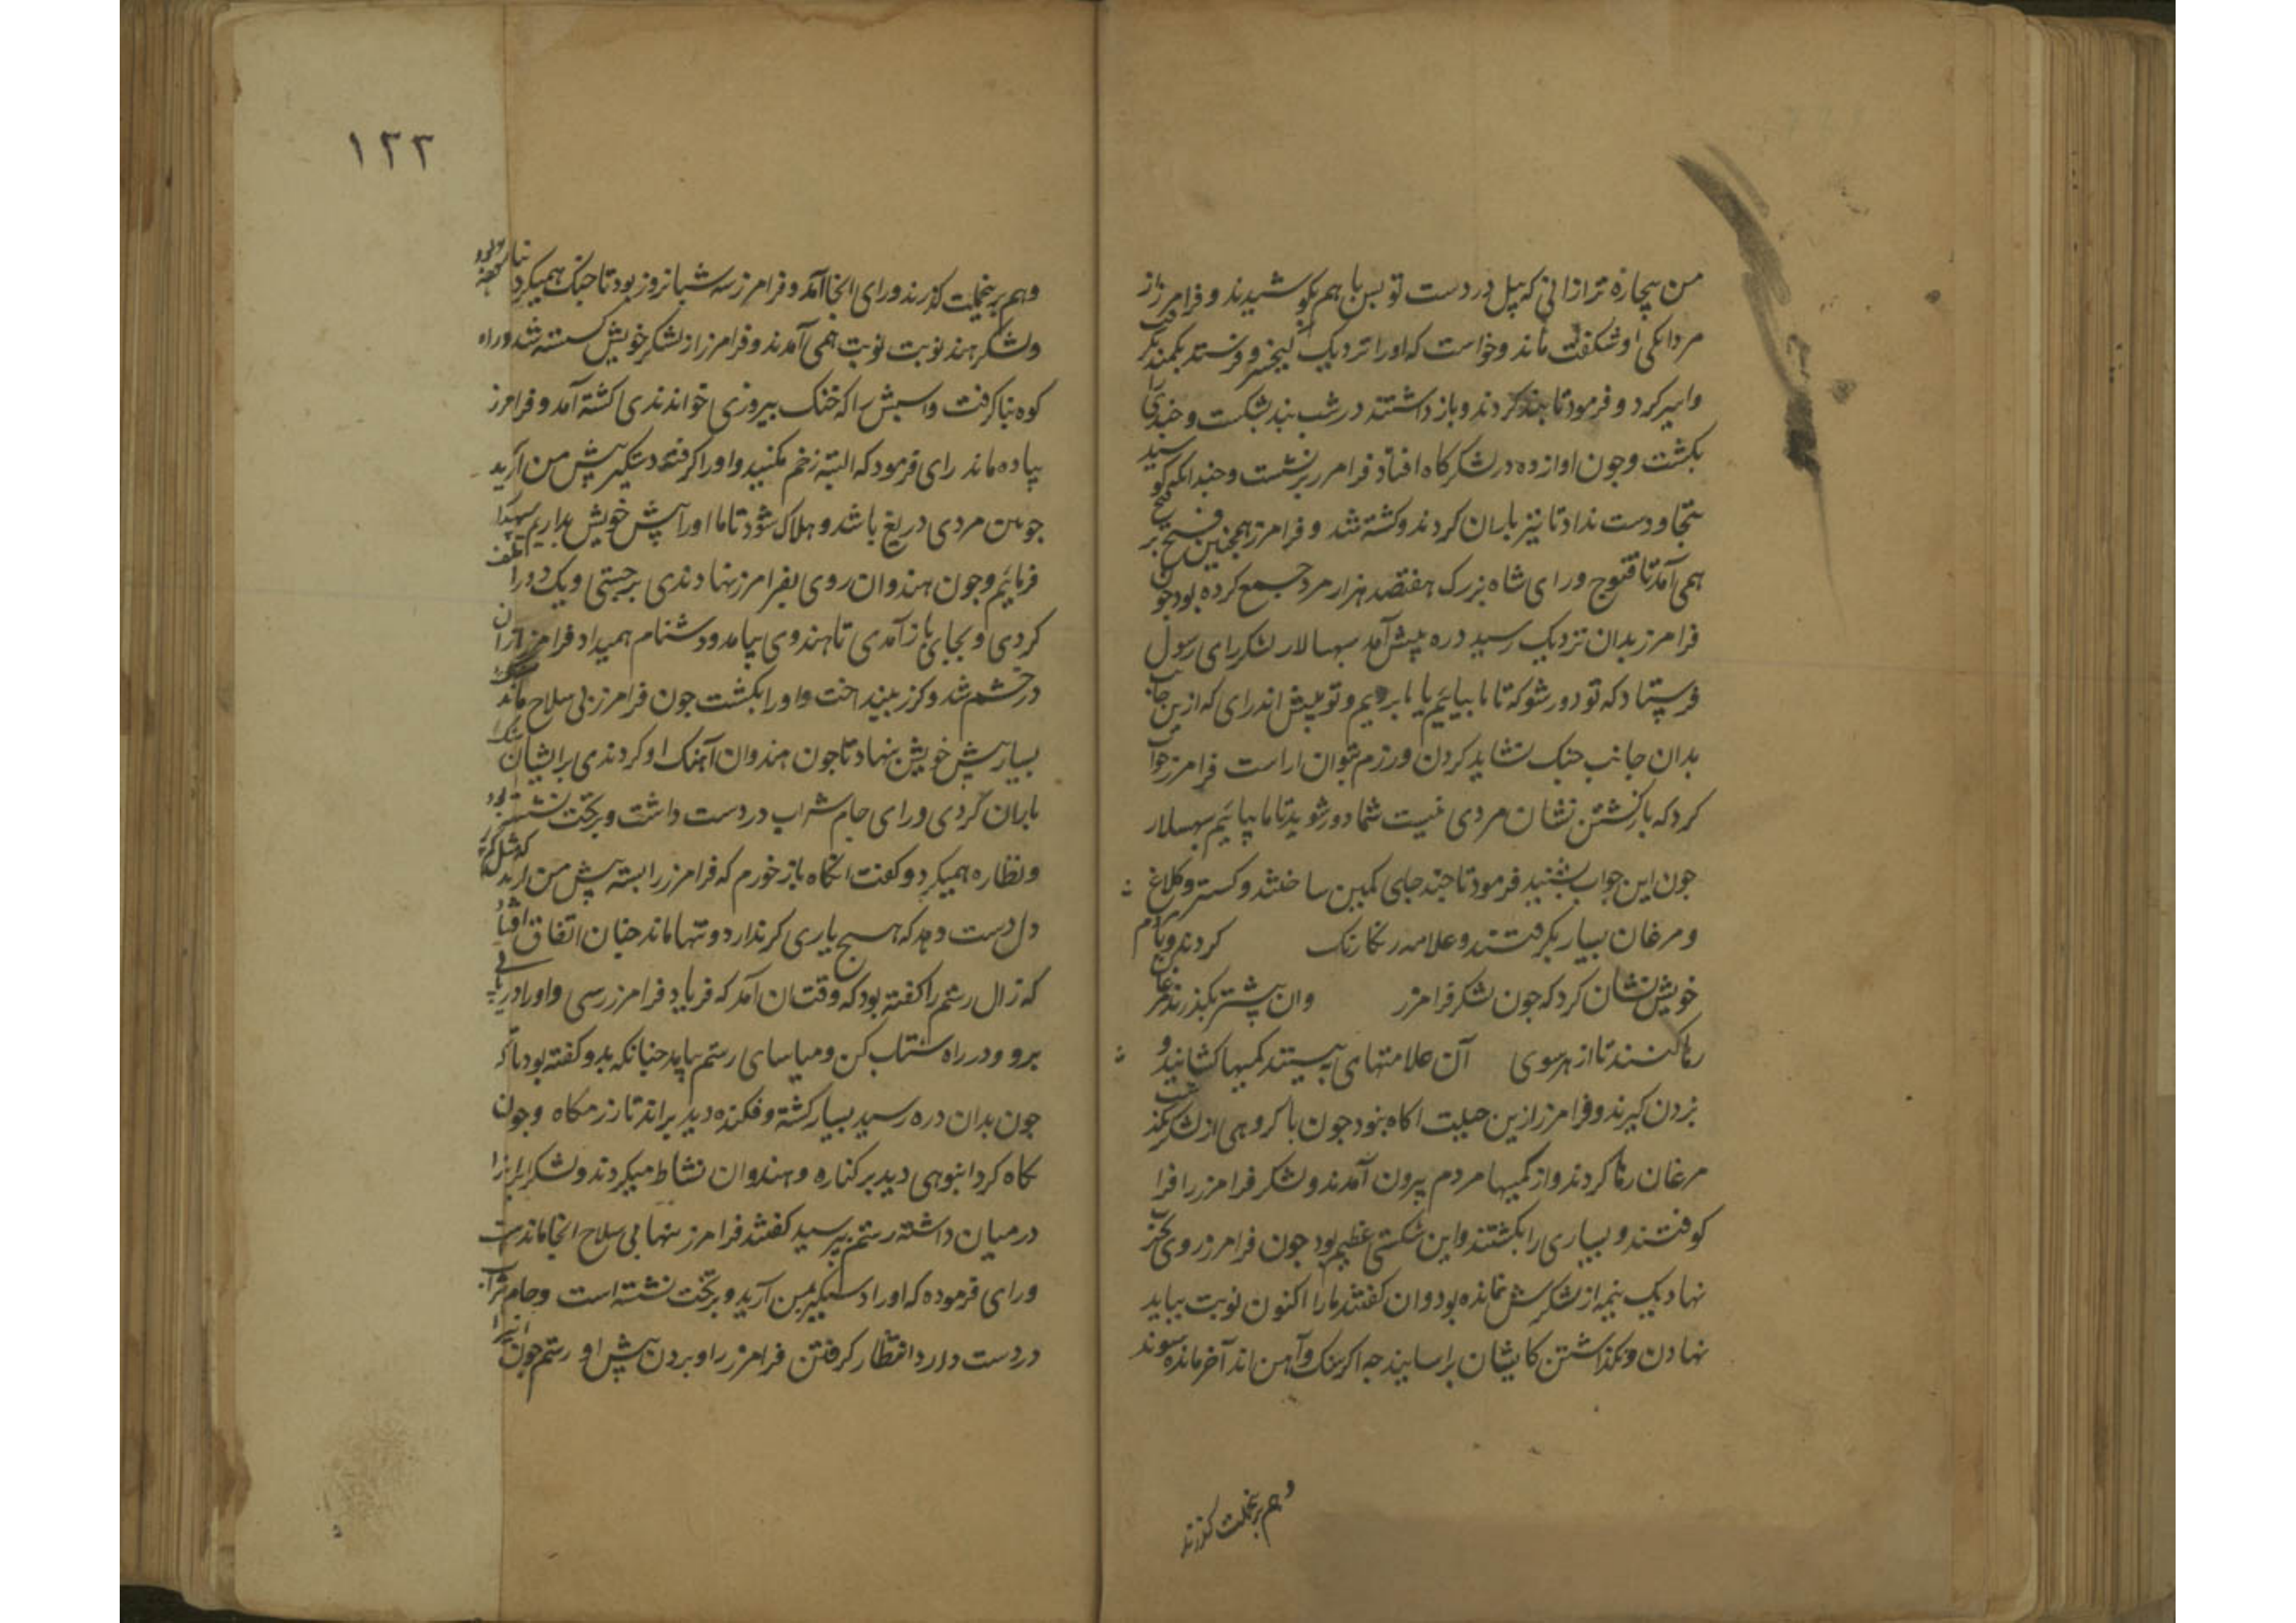 من بیچاره‌تر ازانی که پیل در دست تو بس با هم بکوشیدند و فرامرز از
مردانکی او شکفت ماند و خواست که او را نزدیک کیخسرو فرستد بکمند
و اسیر کرد و فرمود تا بند کردند و باز داشتند در شب بند بشکست و
بکشت و جون اواز ده در لشکرکاه افتاد فرامرز برنشست و جندانکه کو
بتجا و دست نداد تا تیر باران کردند و کشته شد و فرامرز همجنین فتح
همی آمد تا قنوج و رای شاه بزرک هفتصد هزار مرد جمع کرده بود جون
فرامرز بدان نزدیک رسید دره پیش آمد سبهسالار لشکر رای رسول
فرستاد که تو دور شو که تا ما بیائیم یا ما برویم و تو پیش اندر ای که ازین جانب
بدان جانب جنک نشاید کردن و رزم نتوان اراست فرامرز جواب
کرد که بازکشتن نشان مردی نیست شما دور شوید تا ما بیائیم سبهسلار
جون این جواب بشنید فرمود تا جند جای کمین ساختند و کستر و کلاغ
و مرغان بسیار بکرفتند و علامه رنکارنک کردند و بنام
خویش نشان کرد که جون لشکر فرامرز وان بیشتر بکذرند مرغان
رها کنند تا از هر سوی آن علامتهای به بینند کمینها کشانید و
زدن کیرند و فرامرز ازین حیلت اکاه نبود جون با کروهی از لشکر بکذشت
مرغان رها کردند و از کمینها مردم بیرون آمدند و لشکر فرامرز را فرا
کوفتند و بسیاری را بکشتند و این شکستی عظیم بود جون فرامرز روی بحرب
نهاد یک نیمه از لشکرش نمانده بود وان کفتند ما را اکنون نوبت بباید
نهادن و نکذاشتن کایشان براسایند جه اکر سنک و آهن اند آخر مانده شوند
و هم برین جملت کذرند
۱۲۳
و هم برین جملت کذرند و رای انجا آمد و فرامرز سه شبانروز بود تا جنک همیکرد
و لشکر هند نوبت نوبت همی آمدند و فرامرز از لشکر خویش کسسته شد و راه
کوه بنا کرفت و اسبش را که خنک بیروزی خواندندی کشته آمد و فرامرز
پیاده ماند رای فرمود که البته زخم مکنید و او را کرفته دستکیر پیش من آرید
جو من مردی دریغ باشد و هلاک شود تا ما او را پیش خویش بداریم
فرمائیم و جون هندوان روی بفرامرز نهادندی برجستی و یک دو را
کردی و بجای باز آمدی تا هندوی بیامد و دشنام همیداد فرامرز ازان
در خشم شد و کرز بینداخت و او را بکشت جون فرامرز بی سلاح ماند
بسیار پیش خویش بنهاد تا جون هندوان آهنک او کردندی بر ایشان سنک
باران کردی و رای جام شراب در دست داشت و بر تخت نشسته بود
و نظاره همیکرد و کفت انکاه باز خورم که فرامرز را بسته پیش من ارند
دل دست دهد که هیچ یاری کر ندارد و تنها ماند جنان اتفاق افتاد
که زال رستم را کفته بود که وقت آن آمد که فریاد فرامرز رسی و او را دریابی
برو و در راه شتاب کن و میاسای رستم بیاید جنانکه بدو کفته بود
جون بدان دره رسید بسیار کشته و فکنده دید براند تا رزمکاه و جون
نکاه کرد انبوهی دید بر کناره و هندوان نشاط میکردند و لشکر
در میان داشته رستم بپرسید کفتند فرامرز تنها بی سلاح انجا ماندست
و رای فرموده که او را دستکیر بمن آرید و بر تخت نشسته است و جام شراب
در دست دارد انتظار کرفتن فرامرز را و بردن پیش او رستم جون